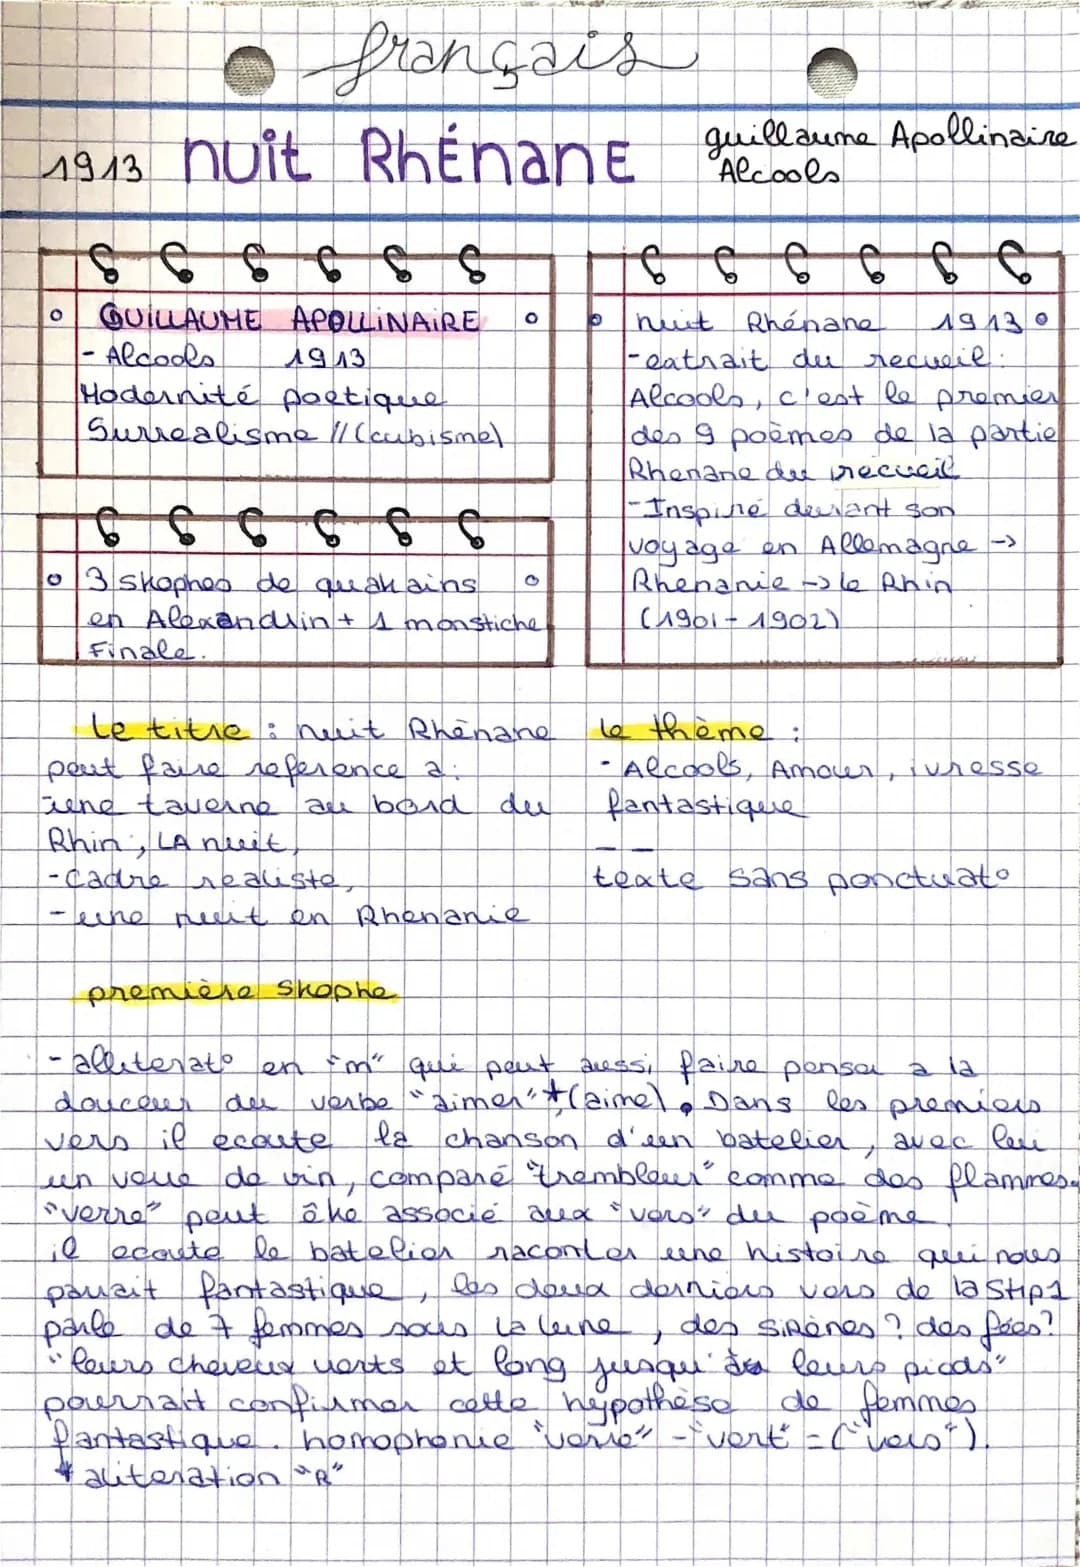 français
1913 nuit RhÉnanE
guillaume Apollinaire
Alcools
GUILLAUME APOLLINAIRE
- Alcools 1913
Modernité poetique
Surrealisme // (cubisme)
3 strophes de quatrains
en Alexandrin + 1 monstiche
Finale.
nuit Rhénane 1913
- extrait du recueil:
Alcools, c'est le premier
des 9 poèmes de la partie
Rhenane du recueil
- Inspiré devant son
voyage en Allemagne ->
Rhenanie -> le Rhin
(1901 - 1902)
Le titre : nuit Rhénane
peut faire reference a:
une taverne au bord du
Rhin, LA nuit,
- Cadre realiste,
- une nuit en Rhenanie
le thème :
- Alcools, Amour, ivresse
fantastique
texte sans ponctuat°
première strophe
- alliterat° en "m" qui peut aussi faire penser a la
douceur du verbe "aimer"* (aime). Dans les premiers
vers il ecoute la chanson d'un batelier, avec lui
un verre de vin, comparé "trembleur" comme des flammes.
"verre" peut être associé aux "vers" du poème.
il ecoute le batelier raconter une histoire qui nous
parait fantastique, les deux derniers vers de la Stp1
parle de 7 femmes sous la lune, des sirènes ? des fées?
"leurs cheveux verts et long jusqu'à leurs pieds"
pourrait confirmer cette hypothèse de femmes
fantastique. homophonie "verre" - "vert" = ("vers").
* aliteration "R"